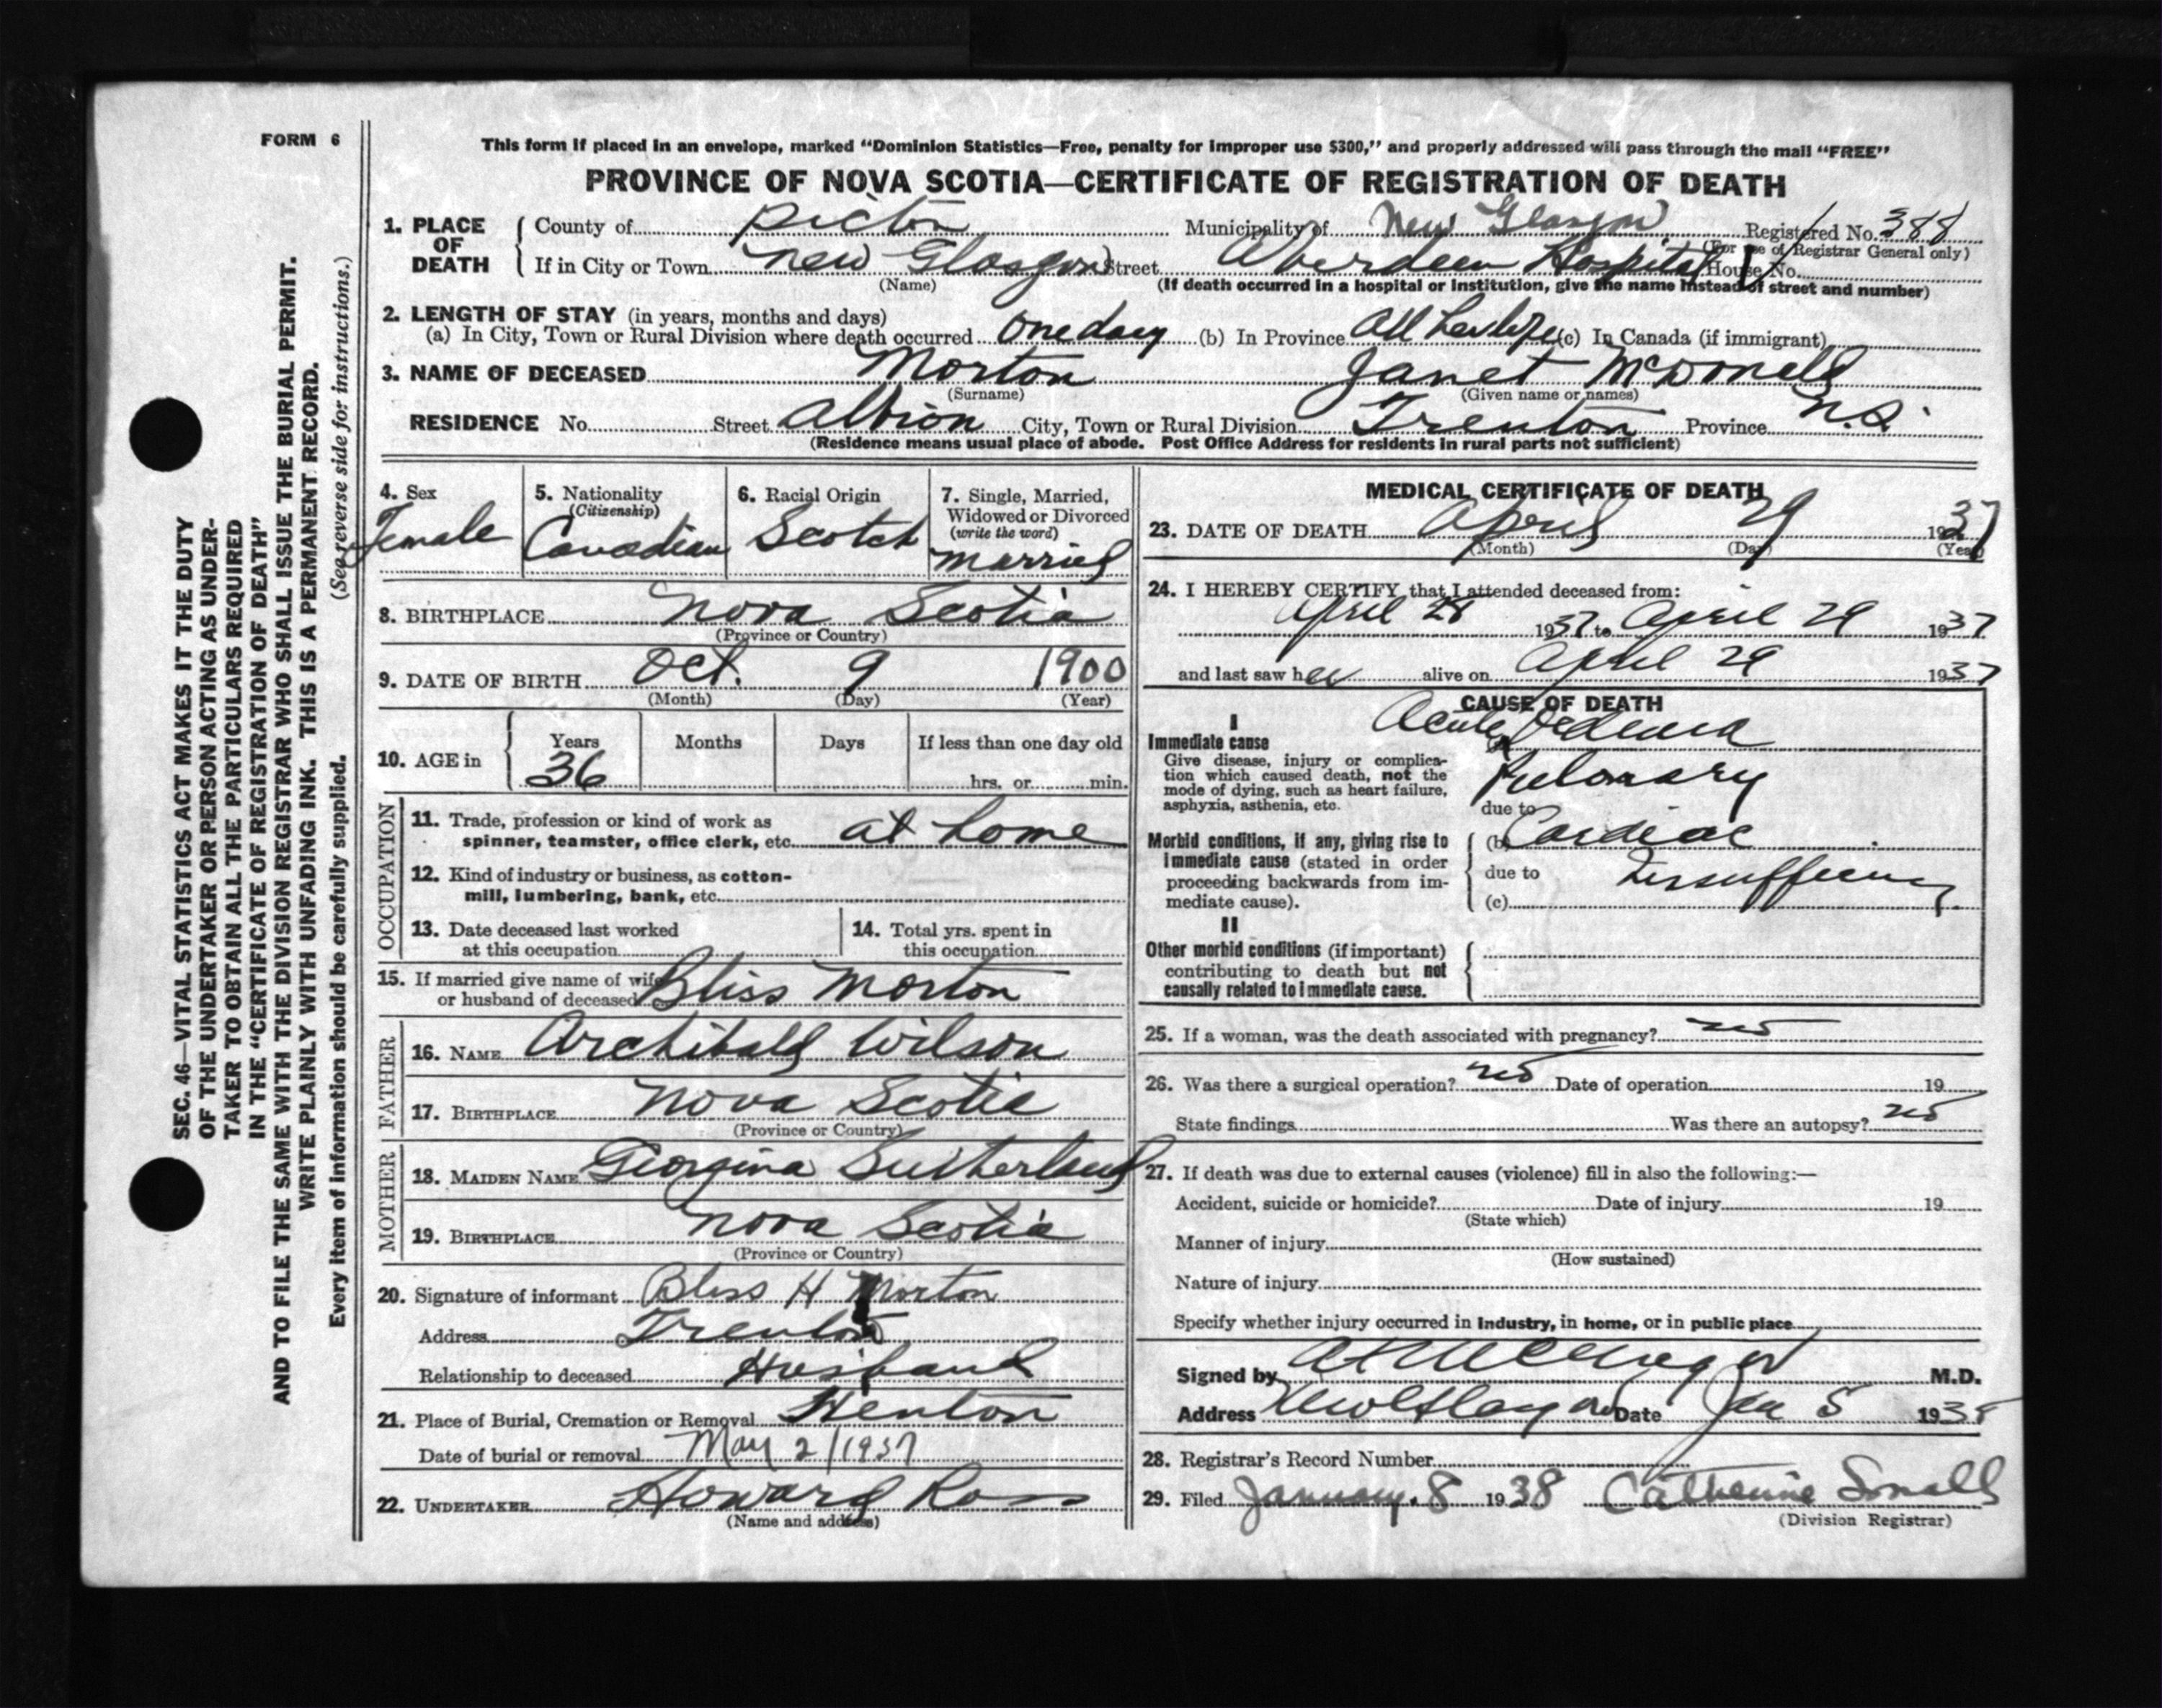 FORM 6
This form if placed in an envelope, marked “Dominion Statistics—Free, penalty for improper use $300,” and properly addressed will pass through the mail “FREE”
PROVINCE OF NOVA SCOTIA—CERTIFICATE OF REGISTRATION OF DEATH
1. PLACE OF DEATH { County of Pictou Municipality of New Glasgow Registered No. 388
(For use of Registrar General only)
If in City or Town New Glasgow Street Aberdeen Hospital House No.
(Name) (If death occurred in a hospital or institution, give the name instead of street and number)
2. LENGTH OF STAY (in years, months and days)
(a) In City, Town or Rural Division where death occurred One day (b) In Province All her life (c) In Canada (if immigrant)
3. NAME OF DECEASED Morton Janet McDonald
(Surname) (Given name or names)
RESIDENCE No. Street Albion City, Town or Rural Division Trenton Province N.S.
(Residence means usual place of abode. Post Office Address for residents in rural parts not sufficient)
4. Sex Female
5. Nationality (Citizenship) Canadian
6. Racial Origin Scotch
7. Single, Married, Widowed or Divorced (write the word) Married
8. BIRTHPLACE Nova Scotia
(Province or Country)
9. DATE OF BIRTH Oct. 9 1900
(Month) (Day) (Year)
10. AGE in { Years 36 Months Days If less than one day old
hrs. or min.
OCCUPATION
11. Trade, profession or kind of work as
spinner, teamster, office clerk, etc. at home
12. Kind of industry or business, as cotton-
mill, lumbering, bank, etc.
13. Date deceased last worked
at this occupation
14. Total yrs. spent in
this occupation
15. If married give name of wife
or husband of deceased Bliss Morton
FATHER
16. NAME Archibald Wilson
17. BIRTHPLACE Nova Scotia
(Province or Country)
MOTHER
18. MAIDEN NAME Georgina Sutherland
19. BIRTHPLACE Nova Scotia
(Province or Country)
20. Signature of informant Bliss H Morton
Address Trenton
Relationship to deceased Husband
21. Place of Burial, Cremation or Removal
Date of burial or removal May 2/1937
22. UNDERTAKER Howard Ross
(Name and address)
MEDICAL CERTIFICATE OF DEATH
23. DATE OF DEATH April 29 1937
(Month) (Day) (Year)
24. I HEREBY CERTIFY that I attended deceased from:
April 28 1937 to April 29 1937
and last saw her alive on April 29 1937
CAUSE OF DEATH
I
Immediate cause Acute Oedema
Give disease, injury or complica-
tion which caused death, not the
mode of dying, such as heart failure,
asphyxia, asthenia, etc.
Pulmonary
due to
Morbid conditions, if any, giving rise to
immediate cause (stated in order
proceeding backwards from im-
mediate cause).
(b) Cardiac
due to Insufficiency
(c)
II
Other morbid conditions (if important)
contributing to death but not
causally related to immediate cause.
25. If a woman, was the death associated with pregnancy? no
26. Was there a surgical operation? no Date of operation 19
State findings Was there an autopsy? no
27. If death was due to external causes (violence) fill in also the following:—
Accident, suicide or homicide? Date of injury 19
(State which)
Manner of injury
(How sustained)
Nature of injury
Specify whether injury occurred in industry, in home, or in public place
Signed by M.D.
Address New Glasgow Date Jan 5 1938
28. Registrar's Record Number
29. Filed January 8 1938 Catherine Small
(Division Registrar)
SEC. 46—VITAL STATISTICS ACT MAKES IT THE DUTY
OF THE UNDERTAKER OR PERSON ACTING AS UNDER-
TAKER TO OBTAIN ALL THE PARTICULARS REQUIRED
IN THE “CERTIFICATE OF REGISTRATION OF DEATH”
AND TO FILE THE SAME WITH THE DIVISION REGISTRAR WHO SHALL ISSUE THE BURIAL PERMIT.
WRITE PLAINLY WITH UNFADING INK. THIS IS A PERMANENT RECORD.
Every item of information should be carefully supplied. (See reverse side for instructions.)